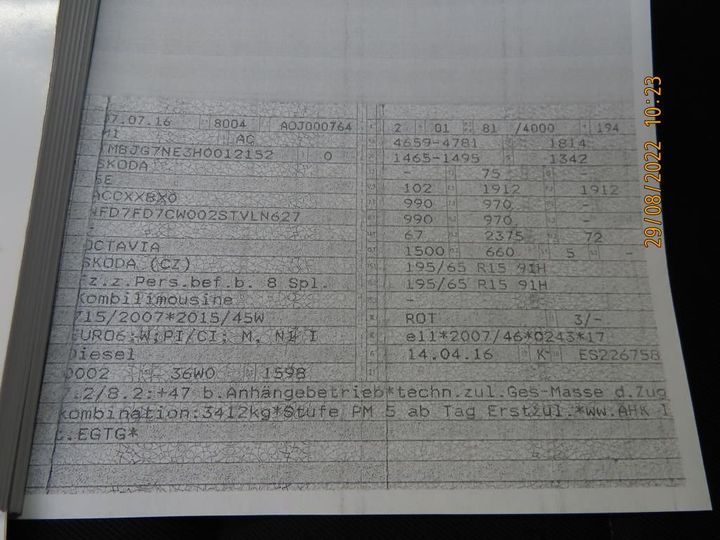 7.07.16 8004 AOJ000764
M1 AC
TMBJG7NE3H0012152 0
SKODA
5E
ACCXXBX0
NFD7FD7CW002STVLN627
-
OCTAVIA
SKODA (CZ)
z.z.Pers.bef.b. 8 Spl.
Kombilimousine
715/2007*2015/45W
EURO6;W;PI/CI; M, N1 I
Diesel
0002 36W0 1598
2 01 81 /4000 194
4659-4781 1814
1465-1495 1342
- 75 -
102 1912 1912
990 970 -
990 970 -
67 2375 72
1500 660 5 -
195/65 R15 91H
195/65 R15 91H
-
ROT 3/-
e11*2007/46*0243*17
14.04.16 K ES226758
7.2/8.2:+47 b.Anhängebetrieb*techn.zul.Ges-Masse d.Zug
kombination:3412kg*Stufe PM 5 ab Tag Erstzul.*ww.AHK l
t.EGTG*
29/08/2022 10:23